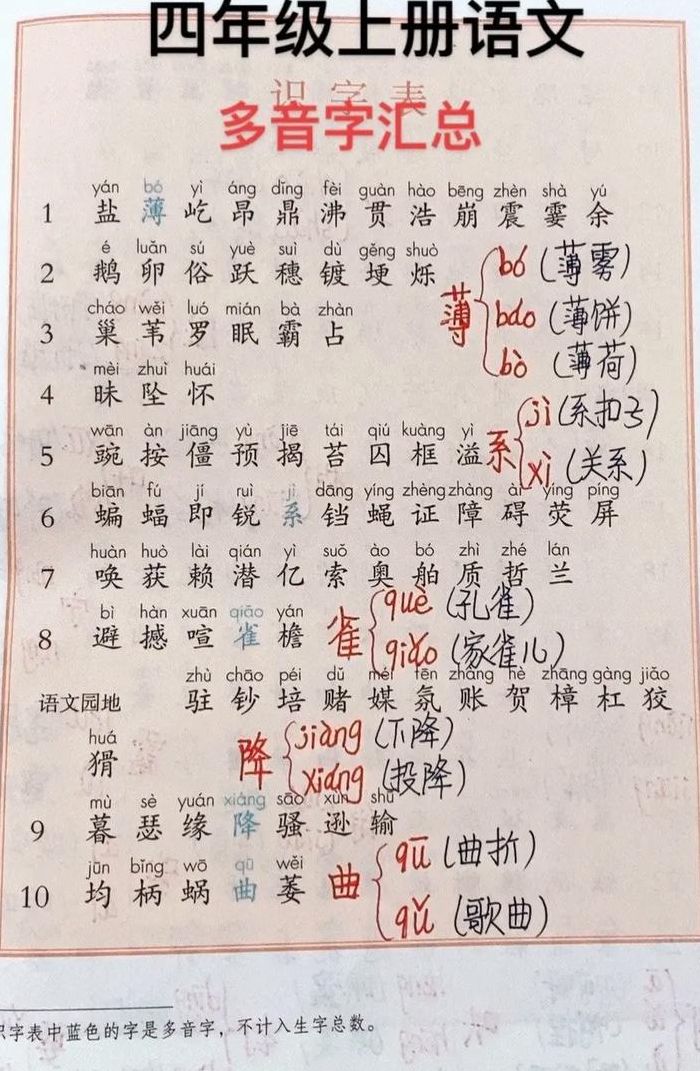 四年级上册语文
识字表
多音字汇总
yán bó yì áng dǐng fèi guàn hào bēng zhèn shà yú
1 盐 薄 屹 昂 鼎 沸 贯 浩 崩 震 霎 余
é luǎn sú yuè suì dù gěng shuò
2 鹅 卵 俗 跃 穗 镀 埂 烁
薄 bó (薄雾)
báo (薄饼)
bò (薄荷)
cháo wěi luó mián bà zhàn
3 巢 苇 罗 眠 霸 占
mèi zhuì huái
4 昧 坠 怀
系 jì (系扣子)
xì (关系)
wān àn jiāng yù jiē tái qiú kuàng yì
5 豌 按 僵 预 揭 苔 囚 框 溢
biān fú jí ruì jì dāng yíng zhèng zhàng ài yíng píng
6 蝙 蝠 即 锐 系 铛 蝇 证 障 碍 荧 屏
huàn huò lài qián yì suǒ ào bó zhì zhé lán
7 唤 获 赖 潜 亿 索 奥 舶 质 哲 兰
bì hàn xuān qiāo yán
8 避 撼 喧 雀 檐
雀 què (孔雀)
qiǎo (家雀儿)
zhù chāo péi dǔ méi fēn zhàng hè zhāng gàng jiǎo
语文园地 驻 钞 培 赌 媒 氛 账 贺 樟 杠 狡
huá
猾
降 jiàng (下降)
xiáng (投降)
mù sè yuán xiáng sāo xùn shū
9 暮 瑟 缘 降 骚 逊 输
jūn bǐng wō qū wěi
10 均 柄 蜗 曲 萎
曲 qū (曲折)
qǔ (歌曲)
识字表中蓝色的字是多音字，不计入生字总数。